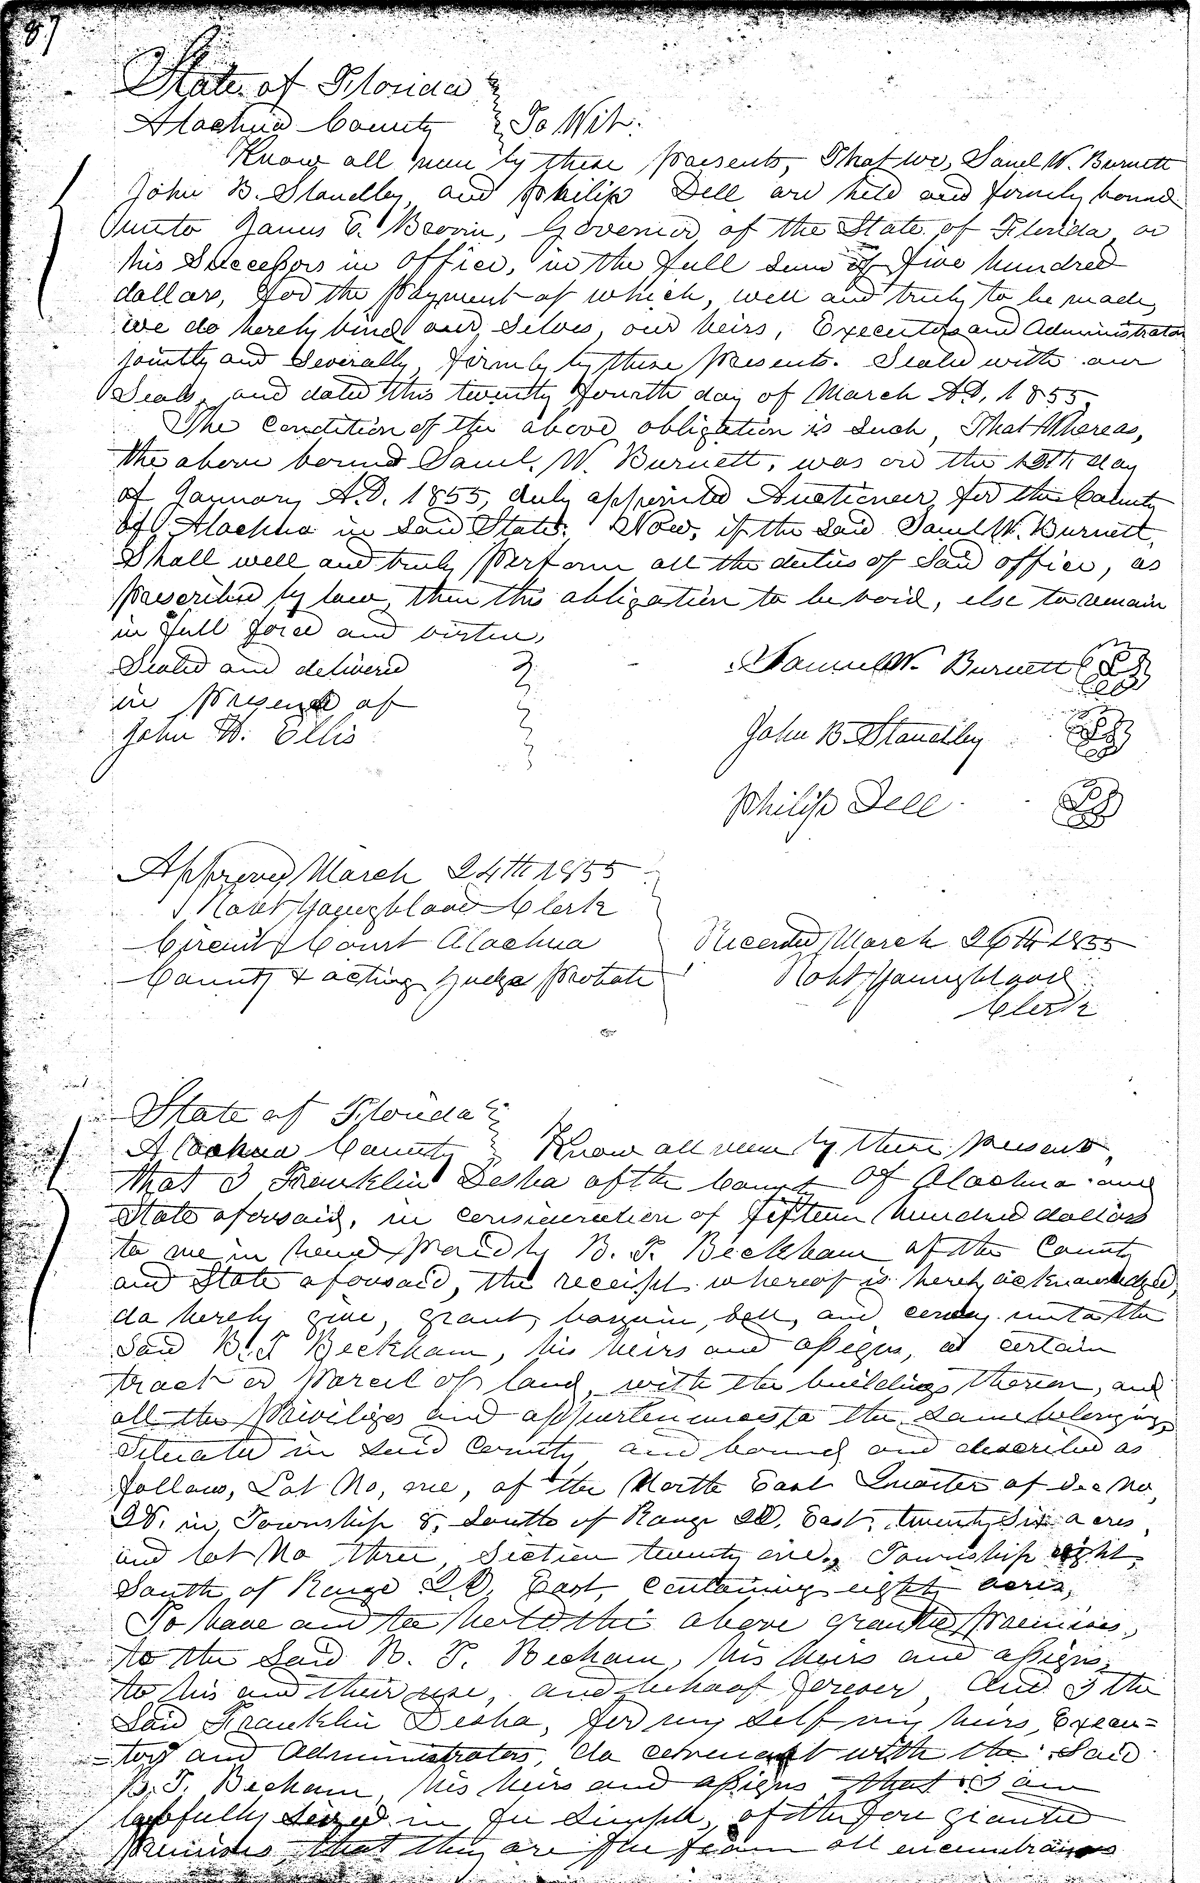 87
State of Florida
Alachua County } To Wit.
Know all men by these presents, That we, Saml W. Burnett
John B. Standley, and Philip Dell are held and firmly bound
unto James E. Broom, Governor of the State of Florida, or
his Successors in office, in the full sum of five hundred
dollars, for the payment of which, well and truly to be made,
we do hereby bind our selves, our heirs, Executors and Administrators
jointly and Severally, firmly by these presents. Sealed with our
Seals, and dated this twenty fourth day of March A.D. 1855.
The Condition of the above obligation is Such, That Whereas,
the above bound Saml. W. Burnett, was on the 13th day
of January A.D. 1855, duly appointed Auctioneer for the County
of Alachua in Said State. Now, if the Said Saml W. Burnett,
Shall well and truly perform all the duties of Said office, as
prescribed by law, then this obligation to be void, else to remain
in full force and virtue,
Sealed and delivered
in presence of
John H. Ellis
Samuel W. Burnett
John B. Standley
Philip Dell
Approved March 24th 1855
Robt Youngblood Clerk
Circuit Court Alachua
County & acting Judge Probate
Recorded March 26th 1855
Robt Youngblood
Clerk
State of Florida
Alachua County } Know all men by these presents,
that I Franklin Desha of the County of Alachua and
State aforesaid, in consideration of fifteen hundred dollars
to me in hand paid by B. T. Beckham of the County
and State aforesaid, the receipt whereof is hereby acknowledged,
do hereby give, grant, bargain, sell, and convey unto the
Said B. T Beckham, his heirs and assigns, a certain
tract or parcel of land, with the buildings thereon, and
all the priviliges and appurtenances to the same belonging,
Situated in Said County, and bound and described as
follows, Lot No, one, of the North East Quarter of Sec No,
28. in Township 8, South of Range 20. East, twenty Six acres,
and lot No three, Section twenty one, Township eight,
South of Range 20, East, containing eighty acres,
To have and to hold the above granted premises,
to the Said B. T. Becham, his heirs and assigns,
to his and their use, and behoof forever, And I the
Said Franklin Desha, for my self my heirs, Execu=
=tors and Administrators, do covenant with the Said
B. T. Becham, his heirs and assigns that I am
lawfully seized in fee simple, of the fore granted
premises, that they are free from all encumbrances